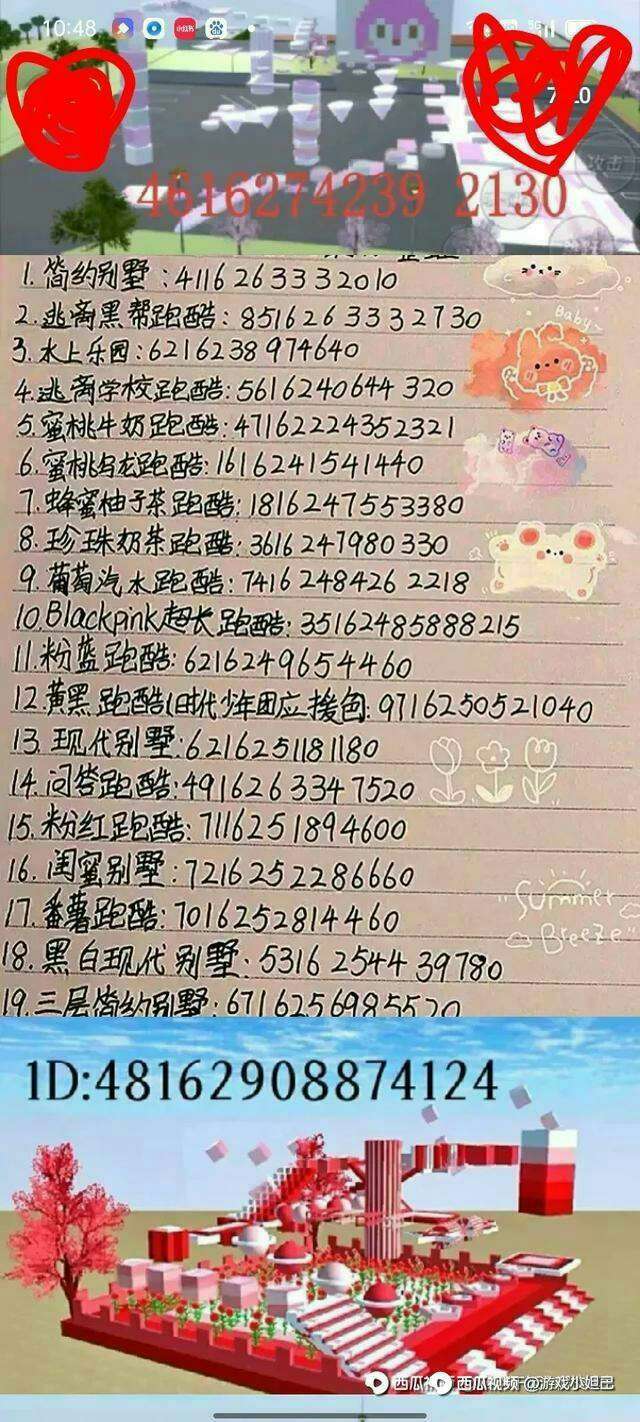 10:48
7:20
攻击
4616274239 2130
1.简约别墅:4116263332010
2.逃离黑帮跑酷:8516263332730
Baby~
3.水上乐园:6216238974640
4.逃离学校跑酷:5616240644320
5.蜜桃牛奶跑酷:47162224352321
6.蜜桃乌龙跑酷:1616241541440
7.蜂蜜柚子茶跑酷:1816247553380
8.珍珠奶茶跑酷:3616247980330
9.葡萄汽水跑酷:7416248426 2218
10.Blackpink超长跑酷:35162485888215
11.粉蓝跑酷:6216249654460
12.黄黑跑酷(时代少年团应援色:9716250521040
13.现代别墅:6216251181180
14.问答跑酷:4916263347520
15.粉红跑酷:7116251894600
16.闺蜜别墅:7216252286660
17.番薯跑酷:7016252814460
Summer
Breeze
18.黑白现代别墅:5316254439780
19.三层简约别墅:6716256985520
ID:48162908874124
西瓜视频 西瓜视频 @游戏小妲己